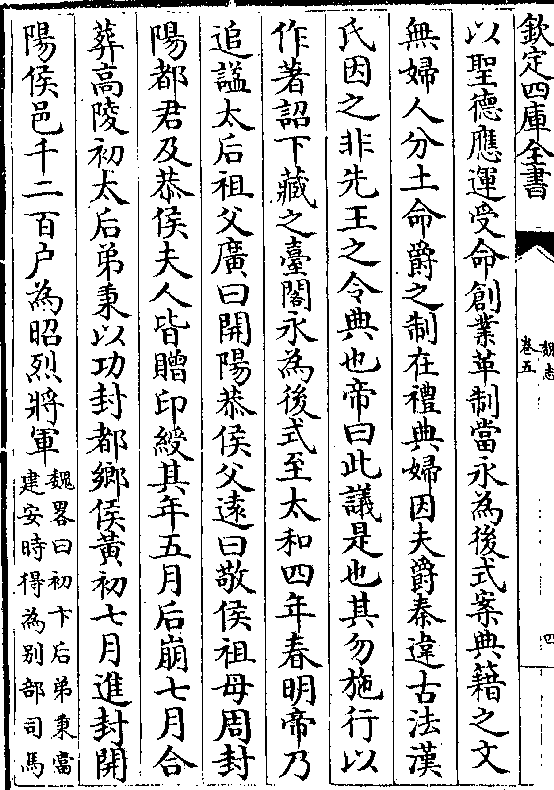 欽定四庫全書
魏志
卷五
四
以聖德應運受命創業革制當永為後式案典籍之文
無婦人分土命爵之制在禮典婦因夫爵秦違古法漢
氏因之非先王之令典也帝曰此議是也其勿施行以
作著詔下藏之臺閣永為後式至太和四年春明帝乃
追諡太后祖父廣曰開陽恭侯父遠曰敬侯祖母周封
陽都君及恭侯夫人皆贈印綬其年五月后崩七月合
葬高陵初太后弟秉以功封都鄉侯黃初七月進封開
陽侯邑千二百户為昭烈將軍
魏畧曰初卞后弟秉當
建安時得為别部司馬